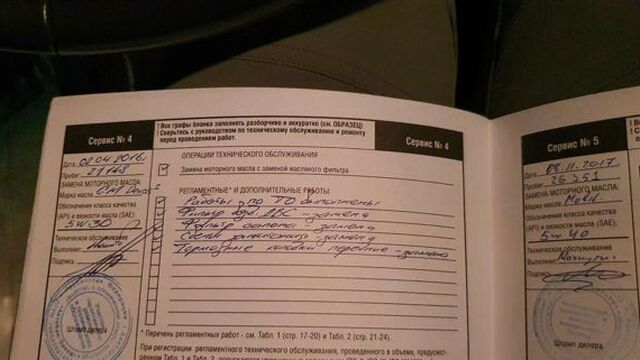 ! Все графы бланка заполнять разборчиво и аккуратно (см. ОБРАЗЕЦ)
! Сверьтесь с руководством по техническому обслуживанию и ремонту
перед проведением работ.
Сервис № 4
Сервис № 4
Дата 02.04.2016г.
Пробег
ЗАМЕНА МОТОРНОГО МАСЛА:
Марка масла GM Dexos 2
Обозначение класса качества
(API) и вязкости масла (SAE):
5W30
Техническое обслуживание
Выполнил
Подпись
Штамп дилера
ОПЕРАЦИИ ТЕХНИЧЕСКОГО ОБСЛУЖИВАНИЯ
Замена моторного масла с заменой масляного фильтра
РЕГЛАМЕНТНЫЕ* И ДОПОЛНИТЕЛЬНЫЕ РАБОТЫ:
Работы по ТО выполнены
Фильтр возд. ДВС - замена
Фильтр салона - замена
Свечи зажигания - замена
Тормозные колодки передние - замена
* Перечень регламентных работ - см. Табл. 1 (стр. 17-20) и Табл. 2 (стр. 21-24).
При регистрации регламентного технического обслуживания, проведенного в объеме, предусмо-
Сервис № 5
Дата 08.11.2017.
Пробег 26 351
ЗАМЕНА МОТОРНОГО МАСЛА:
Марка масла Mobil
Обозначение класса качества
(API) и вязкости масла (SAE):
5W40
Техническое обслуживание
Выполнил
Подпись
Штамп дилера